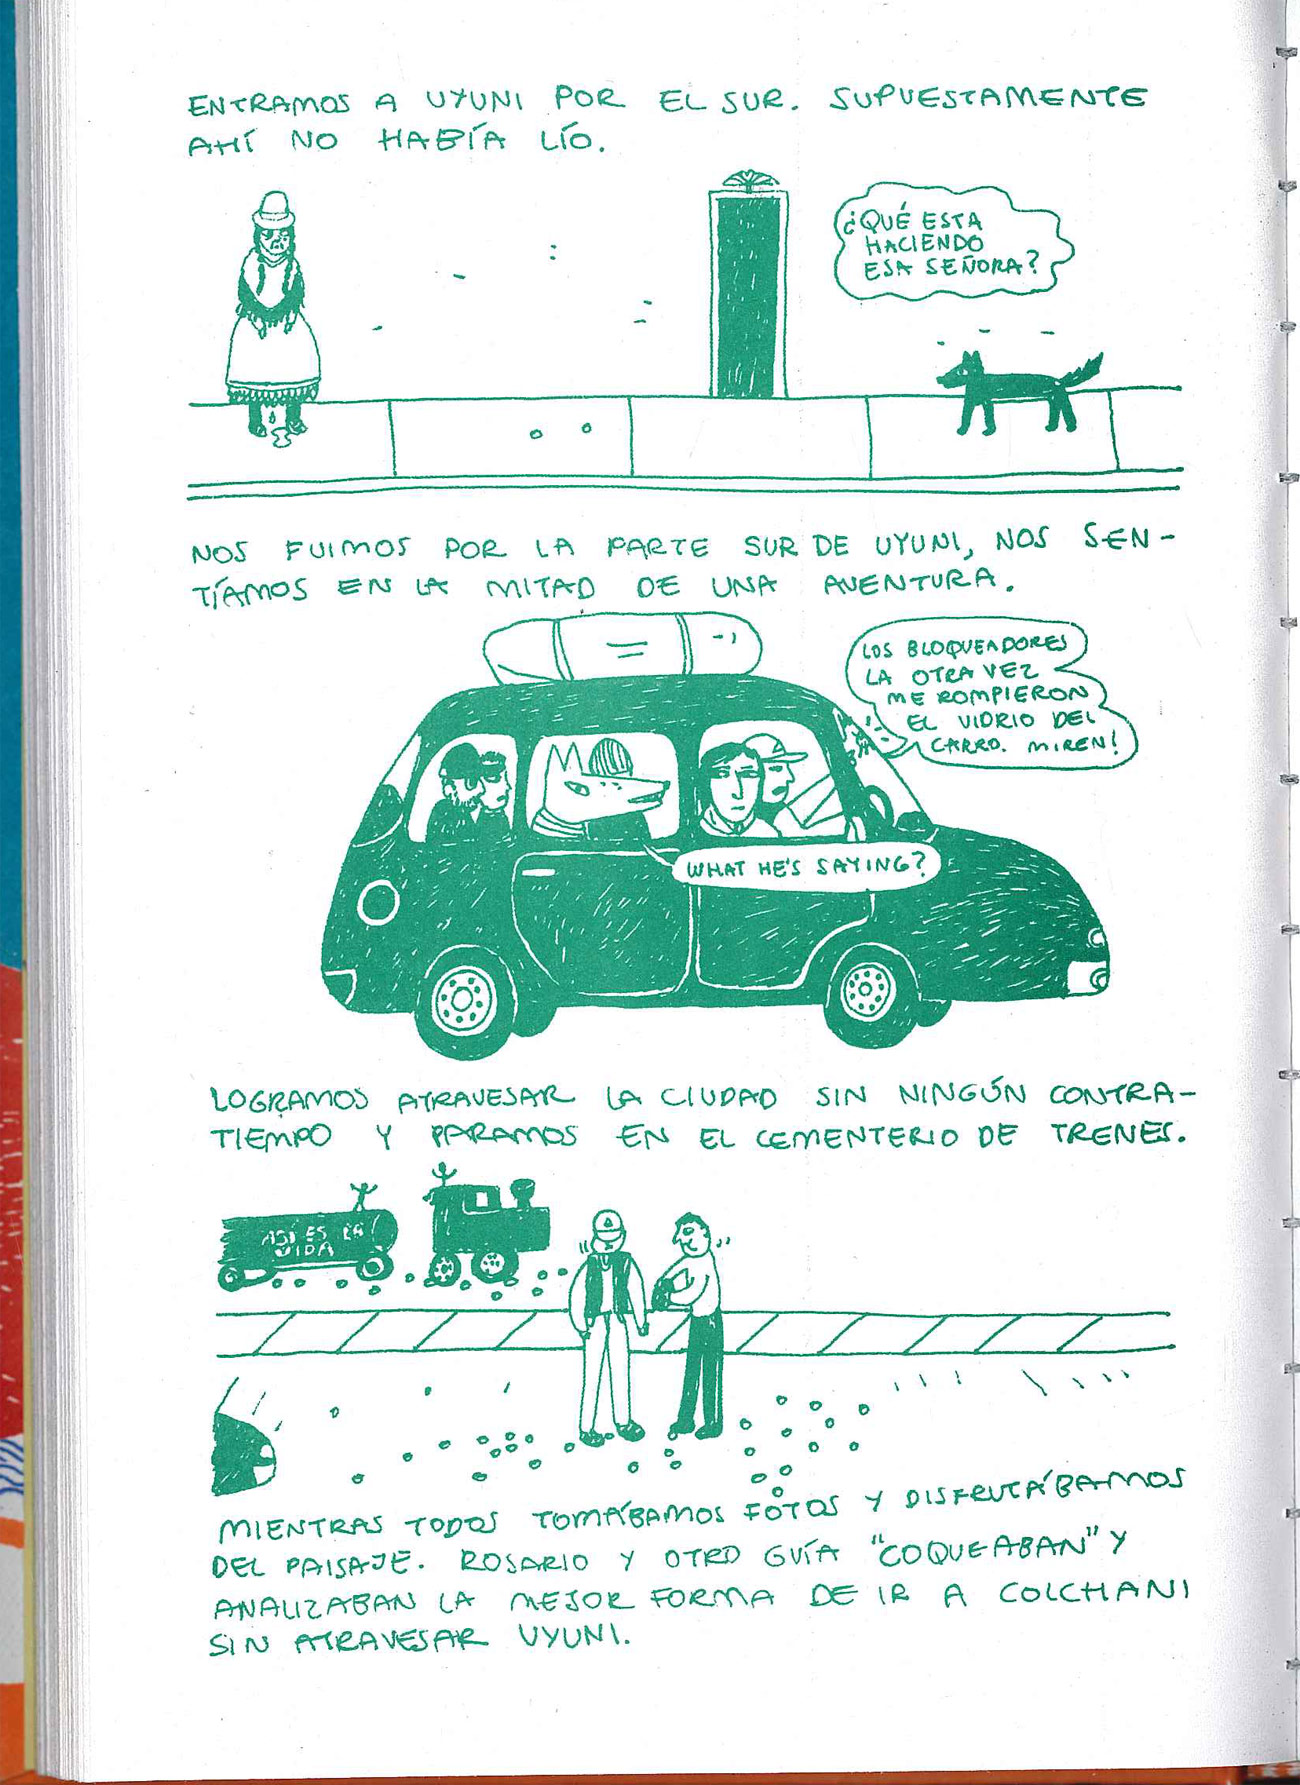 ENTRAMOS A UYUNI POR EL SUR. SUPUESTAMENTE
AHÍ NO HABÍA LÍO.
¿QUÉ ESTA
HACIENDO
ESA SEÑORA?
NOS FUIMOS POR LA PARTE SUR DE UYUNI, NOS SEN-
TÍAMOS EN LA MITAD DE UNA AVENTURA.
LOS BLOQUEADORES
LA OTRA VEZ
ME ROMPIERON
EL VIDRIO DEL
CARRO. MIREN!
WHAT HE'S SAYING?
LOGRAMOS ATRAVESAR LA CIUDAD SIN NINGÚN CONTRA-
TIEMPO Y PARAMOS EN EL CEMENTERIO DE TRENES.
ASÍ ES LA
VIDA
MIENTRAS TODOS TOMÁBAMOS FOTOS Y DISFRUTÁBAMOS
DEL PAISAJE. ROSARIO Y OTRO GUÍA "COQUEABAN" Y
ANALIZABAN LA MEJOR FORMA DE IR A COLCHANI
SIN ATRAVESAR UYUNI.